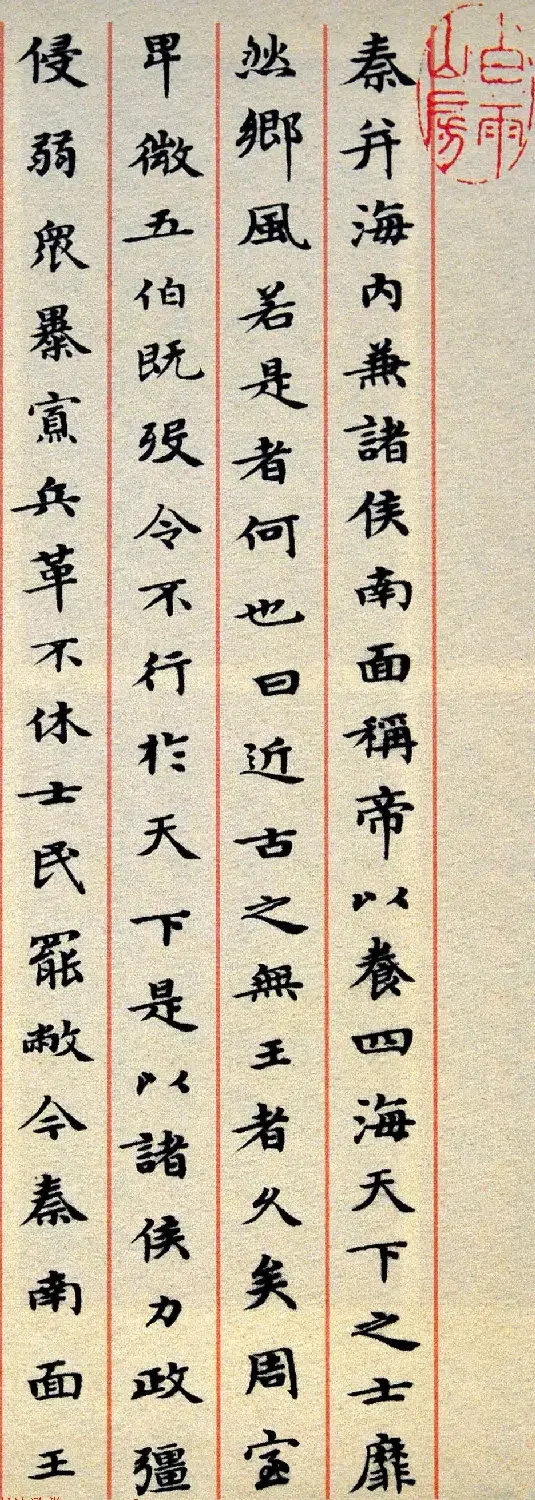 白雨山房
秦并海內兼諸侯南面稱帝以養四海天下之士靡
然鄉風若是者何也曰近古之無王者久矣周室
卑微五伯既歿令不行於天下是以諸侯力政彊
侵弱眾暴寡兵革不休士民罷敝今秦南面王